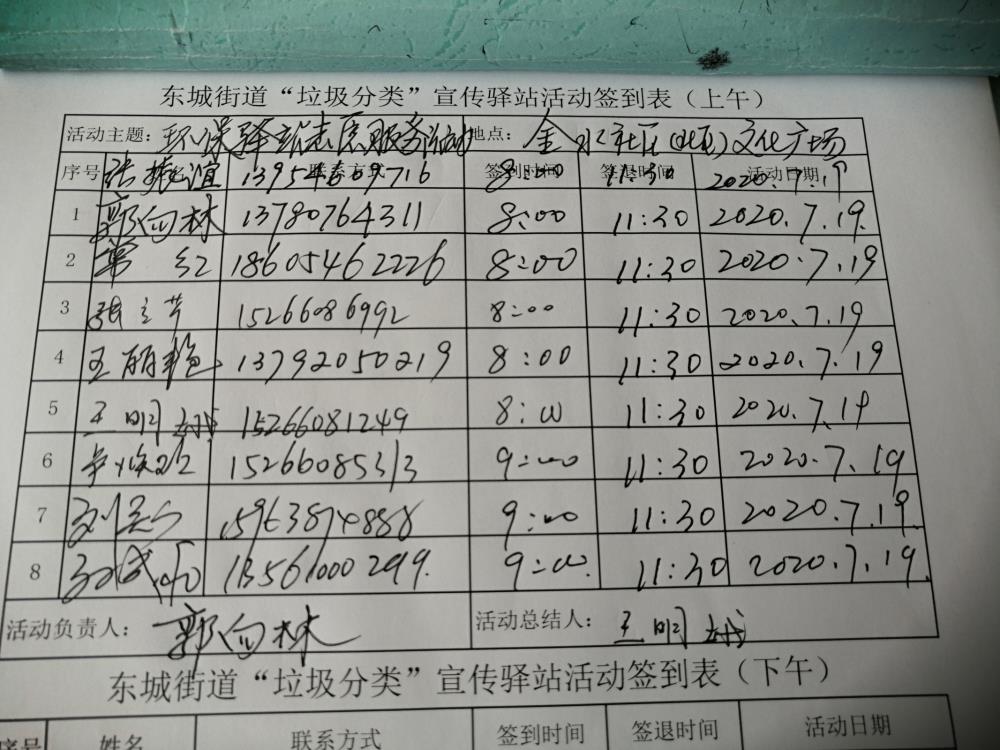 东城街道“垃圾分类”宣传驿站活动签到表（上午）
活动主题：环保驿站志愿服务活动 地点：金水社区 文化广场
序号 联系方式 签到时间 签退时间 活动日期
张振谊 8:00 11:30 2020.7.19
1 郭向林 13780764311 8:00 11:30 2020.7.19.
2 红 18605462226 8:00 11:30 2020.7.19
3 张立芳 15266086992 8:00 11:30 2020.7.19
4 王丽艳 13792050219 8:00 11:30 2020.7.19
5 王明 15266081249 8:00 11:30 2020.7.19
6 15266085313 9:00 11:30 2020.7.19
7 15963874888 9:00 11:30 2020.7.19.
8 13561000299. 9:00. 11:30 2020.7.19.
活动负责人：郭向林 活动总结人：王明
东城街道“垃圾分类”宣传驿站活动签到表（下午）
序号 姓名 联系方式 签到时间 签退时间 活动日期